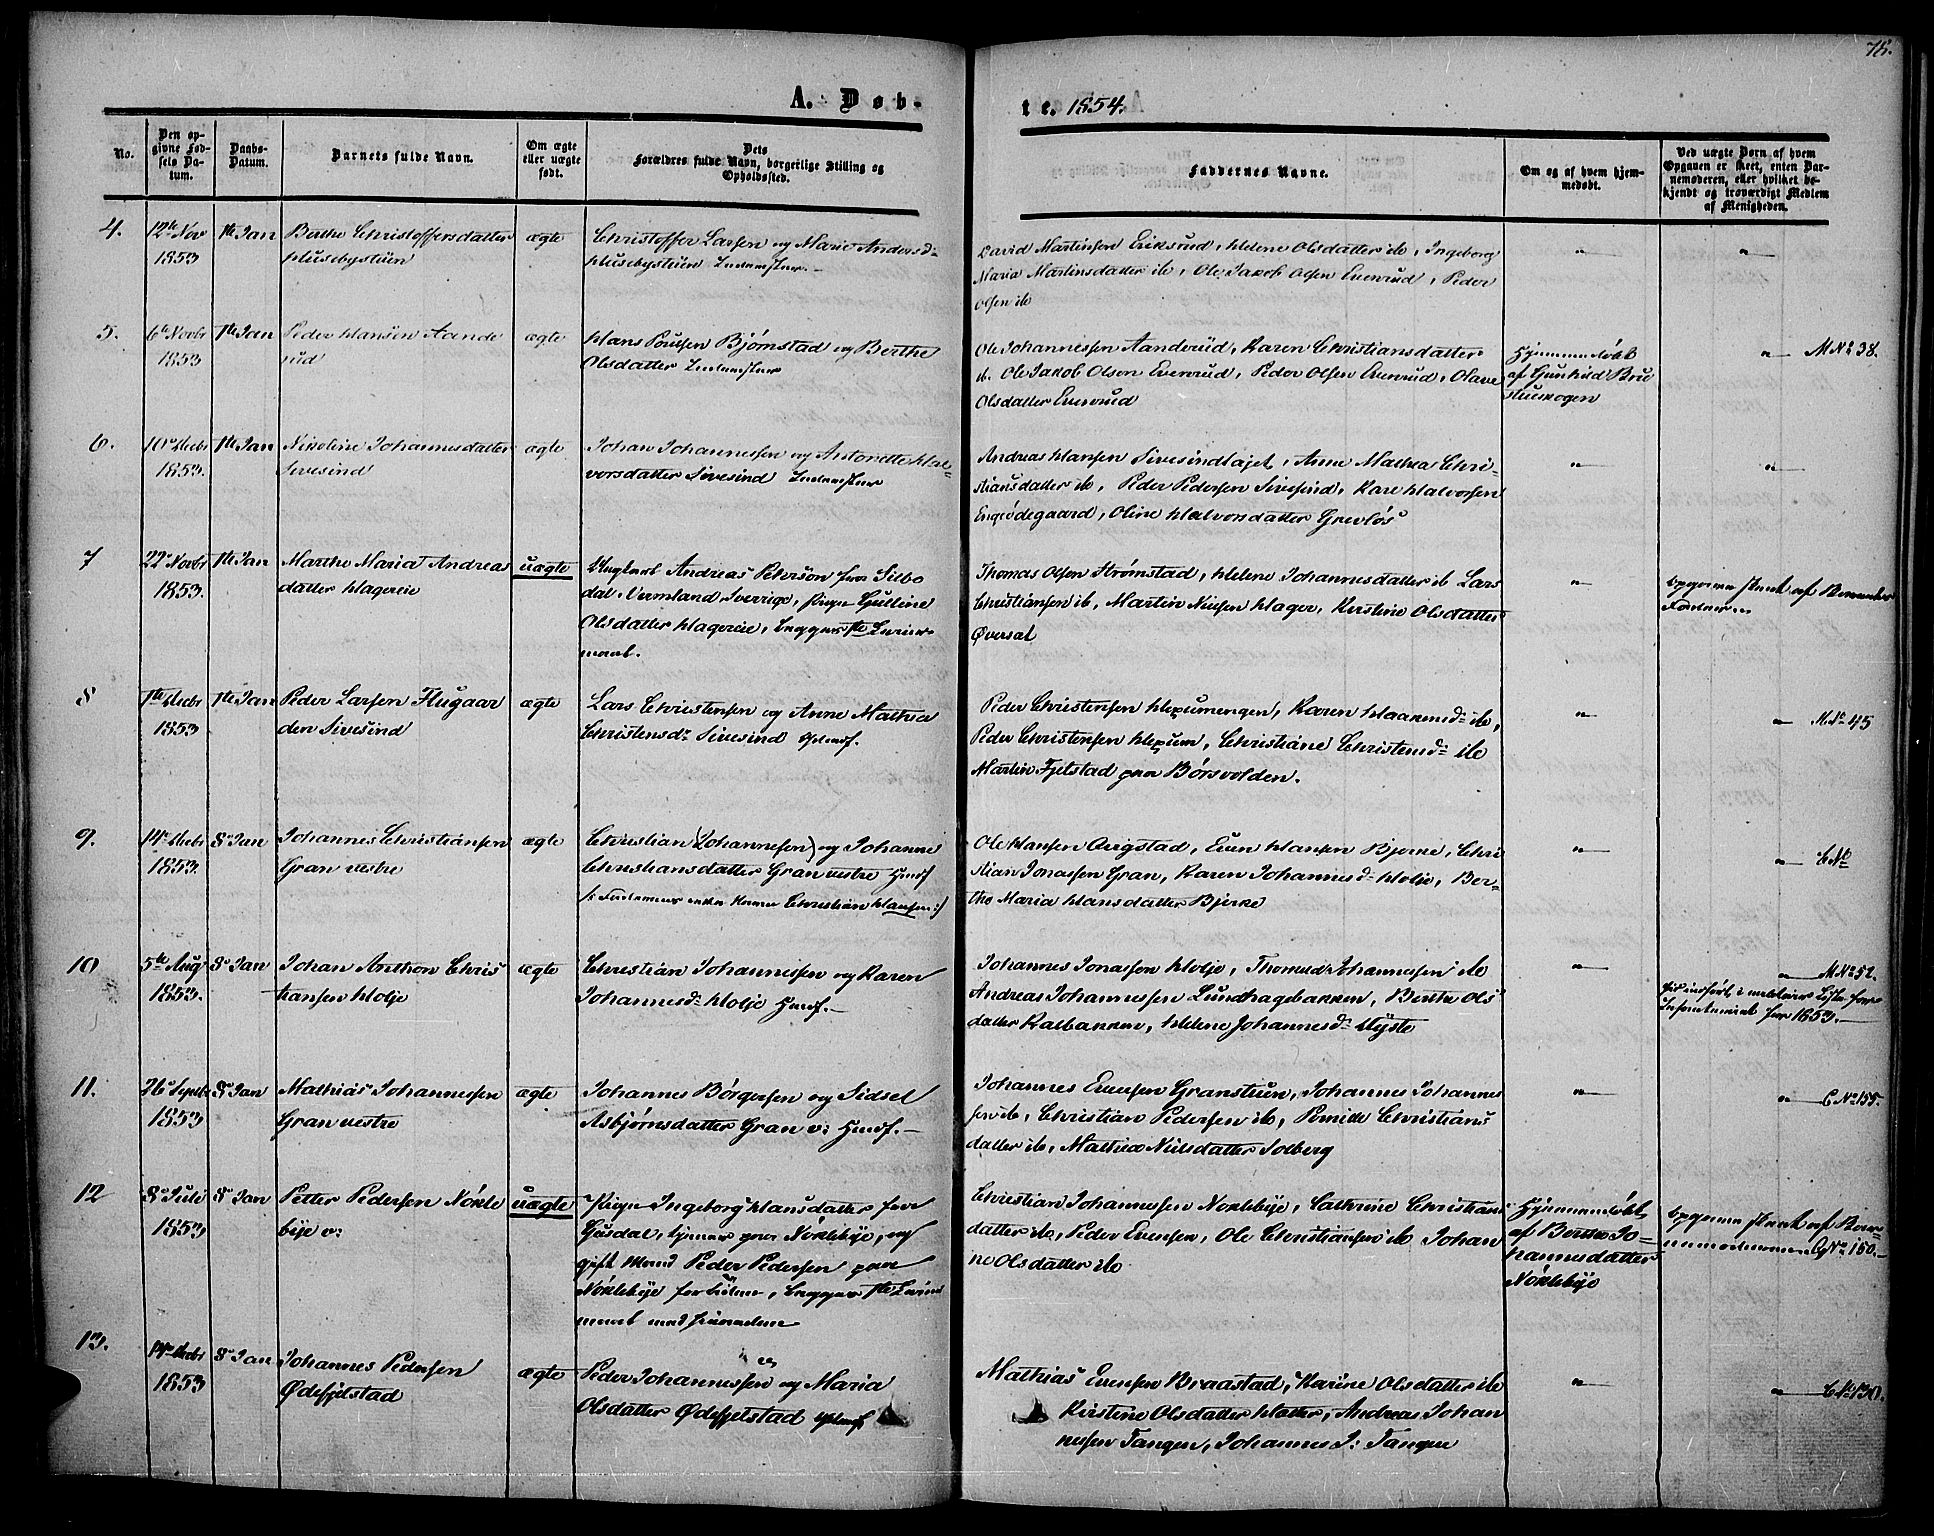 78.
A. Døb-
te. 1854.
No.
Den op-
givne Fød-
sels Da-
tum.
Daabs-
Datum.
Barnets fulde Navn.
Om ægte
eller uægte
født.
Dets
Forældres fulde Navn, borgerlige Stilling og
Opholdssted.
Faddernes Navne.
Om og af hvem hjem-
medøbt.
Ved uægte Børn af hvem
Opgaven er skeet, enten Bar-
nemoderen, eller hvilket be-
kjendt og troværdigt Medlem
af Menigheden.
4.
12te Nov
1853
1te Jan
Berthe Christoffersdatter
Husebystuen
ægte
Christoffer Larsen og Marie Andersd:
Husebystuen
David Martinsen Eriksrud, Helene Olsdatter ib, Ingeborg
Maria Martinsdatter ib, Ole Jakob Olsen Evenrud, Peder
Olsen ib
5.
6te Novbr
1853
1te Jan
Peder Hansen Aande
rud
ægte
Hans Poulsen Bjørnstad og Berthe
Olsdatter
Ole Johannessen Aanderud, Karen Christiansdatter
ib. Ole Jakob Olsen Evenrud, Peder Olsen Evenrud, Olave
Olsdatter Evenrud
Hjemmedøbt
af Gunhild Bru
stueskogen
M No 38.
6.
10 Decbr
1853.
1te Jan
Nikoline Johannesdatter
Sivesind
ægte
Johan Johannessen og Antonette Hal-
vorsdatter Sivesind
Andreas Hansen Sivesindlajet, Anne Mathea Chri-
stiansdatter ib, Peder Pedersen Sivesind, Kare Halvorsen
Engeødegaard, Oline Halvorsdatter Grevløs
7
22 Novbr
1853.
1te Jan
Marthe Maria Andreas
datter Hagereie
uægte
Ungkarl Andreas Peterson fra Silbo
dal, Vermland Sverrige, Pige Gulline
Olsdatter Hagereie, begges 1te Leier-
maal.
Thomas Olsen Strømstad, Helene Johannesdatter ib Lars
Christiansen ib, Martin Nielsen Hager, Kirstine Olsdatter
Øversat
Opgaven skeet af Barnets
Fader
8
1te Decbr
1853
1te Jan
Peder Larsen Flugaar
den Sivesind
ægte
Lars Christensen og Anne Mathea
Christensd: Sivesind
Peder Christensen Hexumengen, Karen Haakensd: ib,
Peder Christensen Hexum, Christiane Christensd: ib
Martin Fjelstad paa Børsvolden.
M No 45
9.
14 Decbr
1853.
8 Jan
Johannes Christiansen
Gran vestre
ægte
Christian (Johannesen) og Johanne
Christiansdatter Gran vestre Huusf
Christian Hansen :/
Ole Hansen Augstad, Even Hansen Bjerke, Chri
stian Jonassen Gran, Karen Johannesd: Holje, Ber-
the Maria Hansdatter Bjerke
C No
10
5te Aug
1853.
8 Jan
Johan Anthon Chris
tiansen Holje
ægte
Christian Johannessen og Karen
Johannesd: Holje Huusf.
Johannes Jonassen Holje, Thomas Johannessen ib
Andreas Johannessen Lundhagebakken, Berthe Ols
datter Kalbakken, Helene Johannesd: Nyste
M No 52.
for 1853.
11.
26 Septbr
1853
8 Jan
Mathias Johannessen
Gran vestre
ægte
Johannes Børgersen og Sidsel
Asbjørnsdatter Gran v: Huusf.
Johannes Evensen Granstuen, Johannes Johannes
sen ib, Christian Pedersen ib, Pernille Christians
datter ib, Mathea Nielsdatter Solberg
C No 155.
12
8 Juli
1853
8 Jan
Petter Pedersen Nøkle
bye v:
uægte
Pige Ingeborg Hansdatter fra
Gusdal, tjener paa Nøklebye, og
gift Mand Peder Pedersen paa
Nøklebye, begges 1te Leier
maal med hinanden
Christian Johannessen Nøklebye, Cathrine Christians
datter ib, Peder Evensen, Ole Christiansen ib Johan
ne Olsdatter ib
Hjemmedøbt
af Berthe Jo-
hannesdatter
Nøklebye
Opgaven skeet af Bar-
nemoderen C No 150.
13.
14 Decbr
1853
8 Jan
Johannes Pedersen
Ødefjelstad
ægte
Peder Johannessen og Maria
Olsdatter Ødefjelstad
Mathias Evensen Braastad, Karine Olsdatter ib
Kirstine Olsdatter Hatter, Andreas Johan
nessen Tangen, Johannes J: Tangen
C No 130.